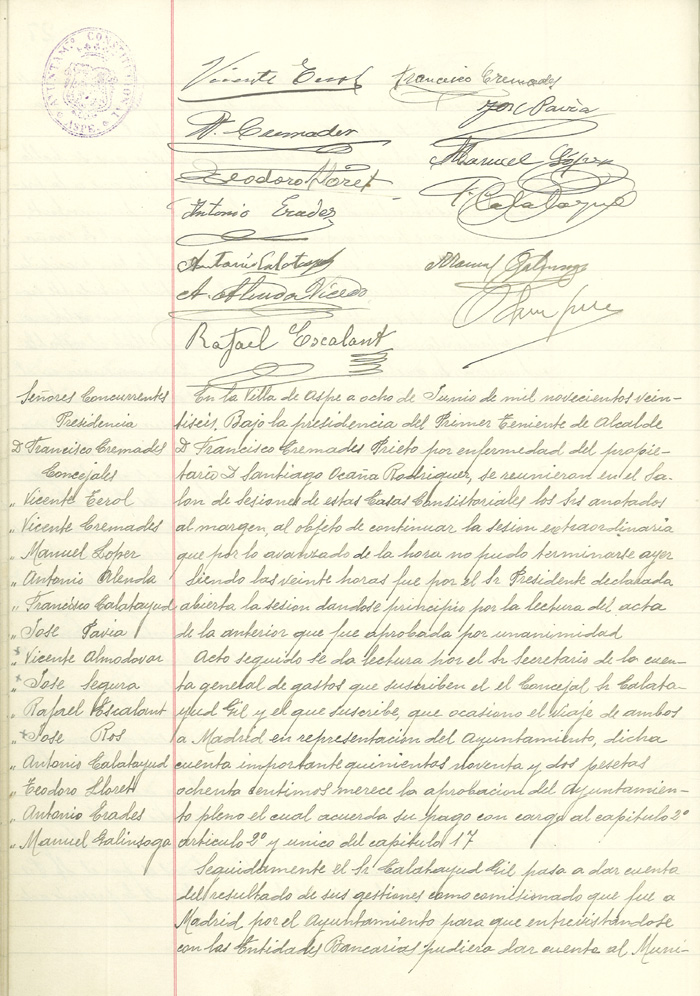 AYUNTAM.º CONSTITUCIONAL
ASPE
Vicente Cerol Francisco Cremades
José Pavía
V. Cremades
Manuel López
Teodoro Lloret
F. Calatayud
Antonio Erades
Antonio Calatayud Manuel Galinsoga
A. Almoda Vicedo
Rafael Escalant
Señores Concurrentes
Presidencia
D Francisco Cremades
Concejales
„ Vicente Cerol
„ Vicente Cremades
„ Manuel Lopez
„ Antonio
„ Francisco Calatayud
„ Jose Pavia
„ Vicente Almodovar
„ Jose Segura
„ Rafael Escalant
„ Jose Ros
„ Antonio Calatayud
„ Teodoro Lloret
„ Antonio Erades
„ Manuel Galinsoga
En la Villa de Aspe a ocho de Junio de mil novecientos vein-
tiseis, Bajo la presidencia del Primer Teniente de Alcalde
D Francisco Cremades Prieto por enfermedad del propie-
tario D Santiago Ocaña Rodriguez, se reunieran en el Sa-
lon de Sesiones de estas Casas Consistoriales los Srs anotados
al margen, al objeto de continuar la sesion extraordinaria
que por lo avanzado de la hora no pudo terminarse ayer
Siendo las veinte horas fue por el Sr Presidente declarada
abierta la sesion dandose principio por la lectura del acta
de la anterior que fue aprobada por unanimidad
Acto seguido se da lectura por el Sr Secretario de la cuen-
ta general de gastos que suscriben el el Concejal Sr Calata-
yud Gil y el que suscribe, que ocasiono el viaje de ambos
a Madrid en representacion del Ayuntamiento, dicha
cuenta importante quinientos noventa y dos pesetas
ochenta sentimos merece la aprobacion del Ayuntamien-
to pleno el cual acuerda su pago con cargo al capitulo 2º
articulo 2º y unico del capitulo 17
Seguidamente el Sr Calatayud Gil pasa a dar cuenta
del resultado de sus gestiones como comisionado que fue a
Madrid por el Ayuntamiento para que entrevistandose
con las Entidades Bancarias pudiera dar cuenta al Muni-